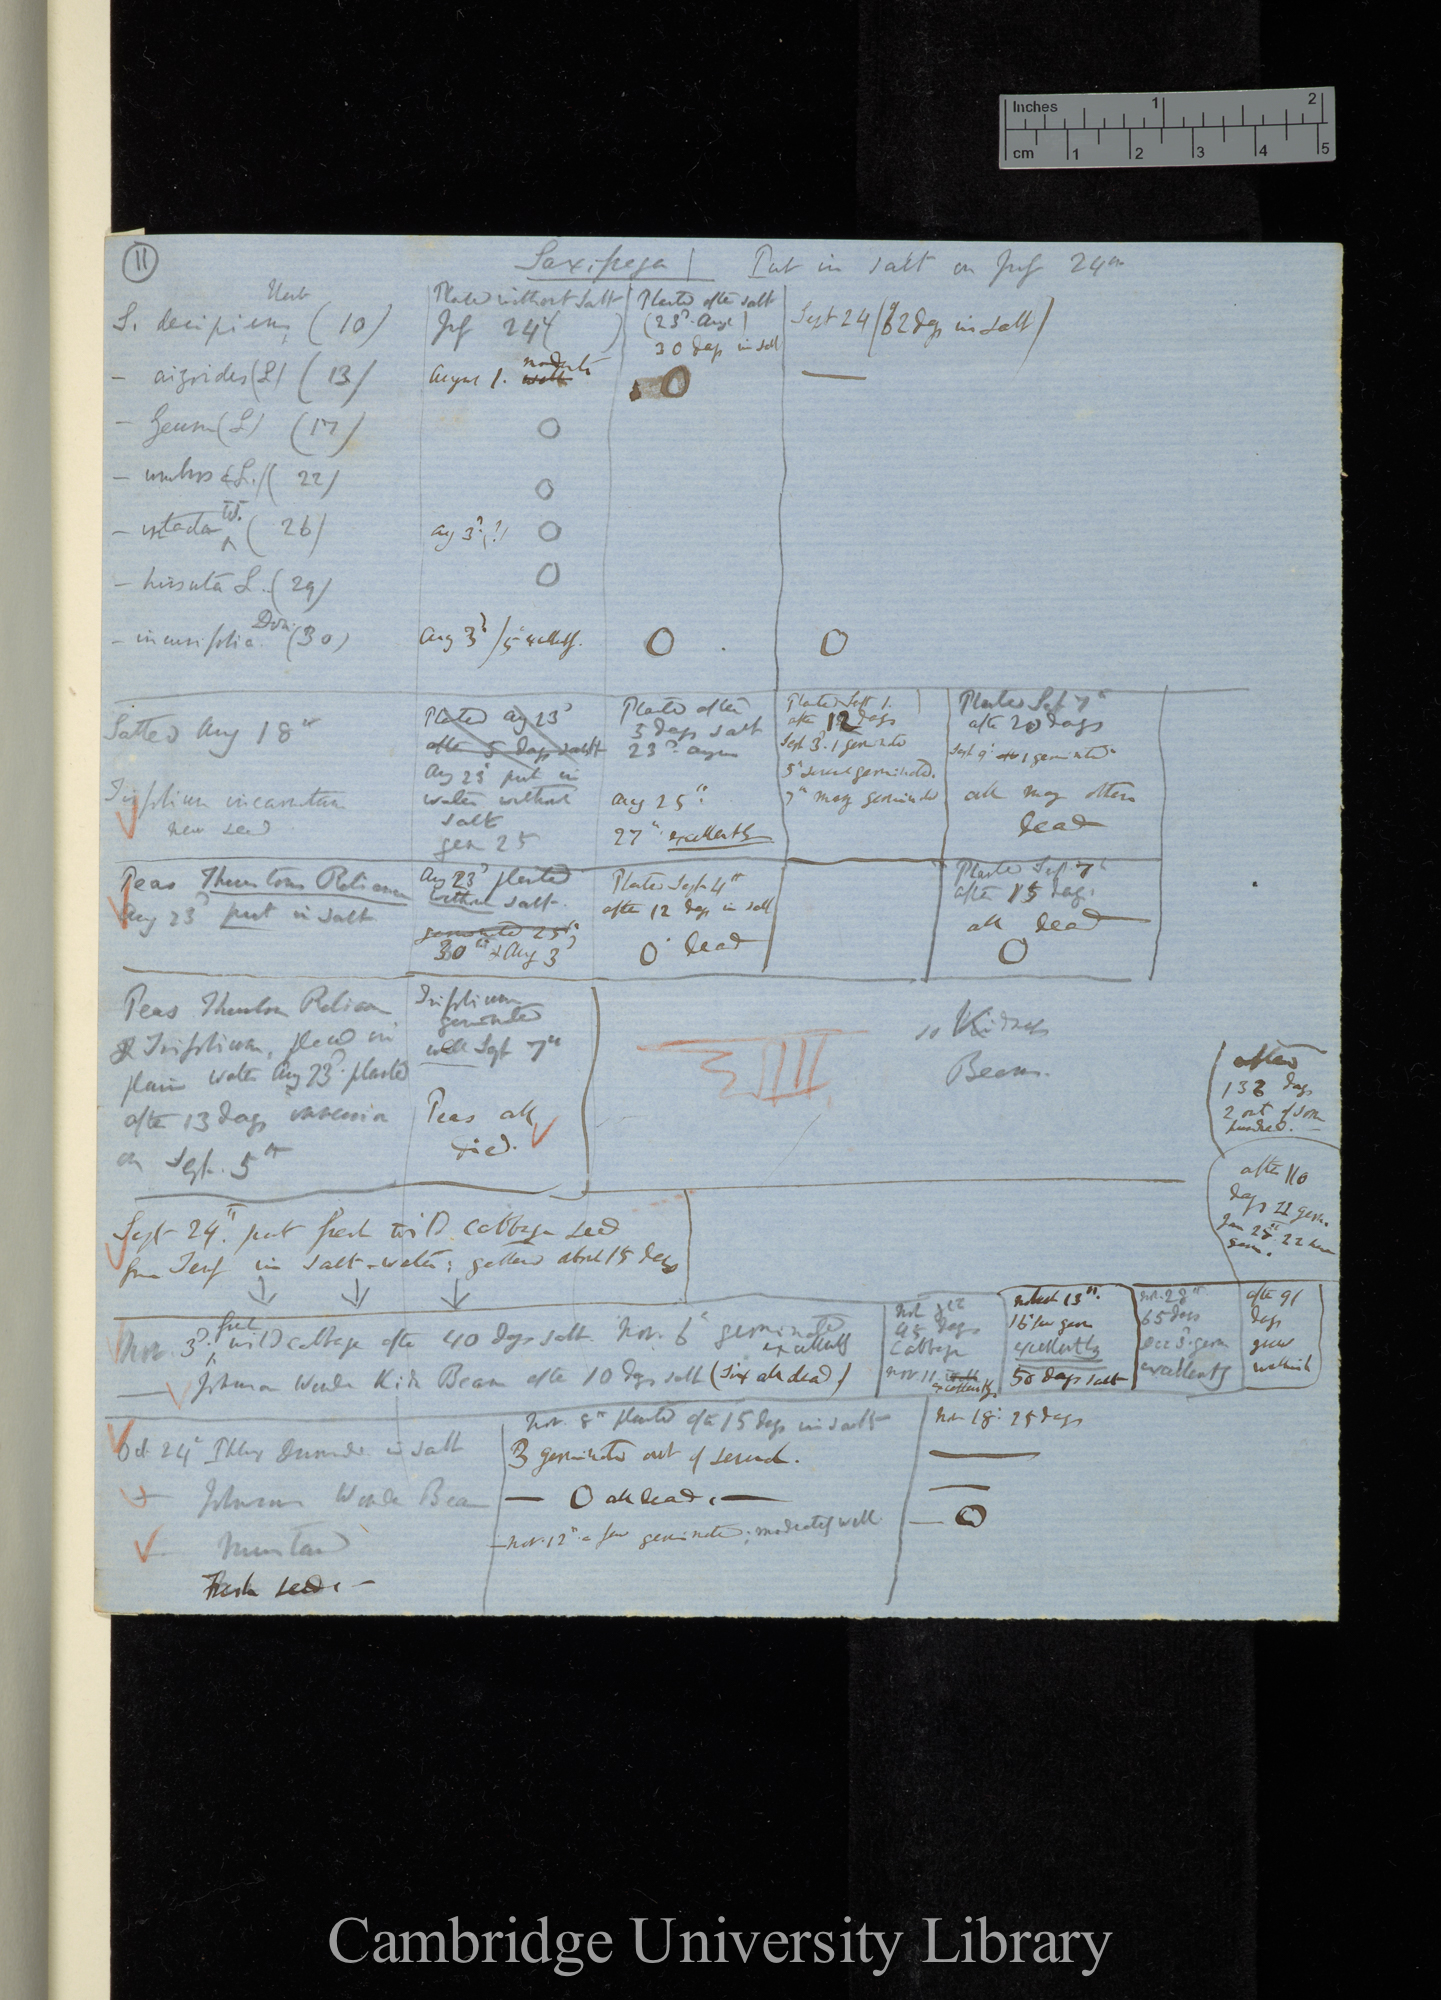 Inches 1 2
cm 1 2 3 4 5
11
Saxifraga Put in salt on July 24th
Planted without Salt
July 24
Planted after salt
(23d Augt)
30 days in salt
Sept 24 (62 days in salt)
S. decipiens (10)
— aizoides (L) (13)
August 1. moderately well
O
—
— Geum (L) (17)
O
— umbros (L.) (22)
O
(26)
Aug 3d (?)
O
— hirsuta L. (29)
O
— incurvifolia Don. (30)
Aug 3d / 5th excellently.
O
O
Salted Aug 18th
Trifolium incarnatum
new seed
Planted Aug 23d
after 5 days salt
Aug 23d put in
water without
salt
ger 25
Planted after
5 days salt
23d August
Aug 25th
27th excellently
Planted Sept 1.
after 12 days
Sept 3d. 1 germinated
5th several germinated.
7th many germinated
Planted Sept 7th
after 20 days
Sept 9th 1 germinated
all many others
dead
Peas Thurstons Reliance
Aug 23d put in salt
Aug 23d planted
without salt.
germinated 25th
30th & Aug 3d
Planted Sept 4th
after 12 days in salt
O dead
Planted Sept 7th
after 15 days
all dead
O
Peas Thurston Reliance
& Trifolium, placed in
plain water Aug 23d planted
after 13 days immersion
on Sept. 5th
Trifolium
germinated
well Sept 7th
Peas all
died.
10 Kidney
Beans.
after
2 out of some
hundred.
after 110
days 22 germ.
Jan 25th 22 have
germ.
Sept 24th put fresh wild cabbage seed
in salt-water; gathered about 15 days
Nov. 3d. fresh wild cabbage after 40 days salt. Nov. 6th germinated
excellently
— Johnson Wonder Kid. Bean after 10 days salt (Six all dead)
45 days
Cabbage
Nov. 11 well
excellently
13th.
16th few germ
excellently
50 days salt
Nov. 28th
65 days
Dec 3d germ
excellently
after 91
days
grew
wellish
Oct 24th Phlox Drummondii in salt
Nov. 8th planted after 15 days in salt
3 germinated out of several.
Nov 18th 25 days
—
+ Johnsons Wonder Bean
— O all dead. —
—
Mustard
— Nov. 12th a few germinated; moderately well
— O
Fresh seeds. —
Cambridge University Library